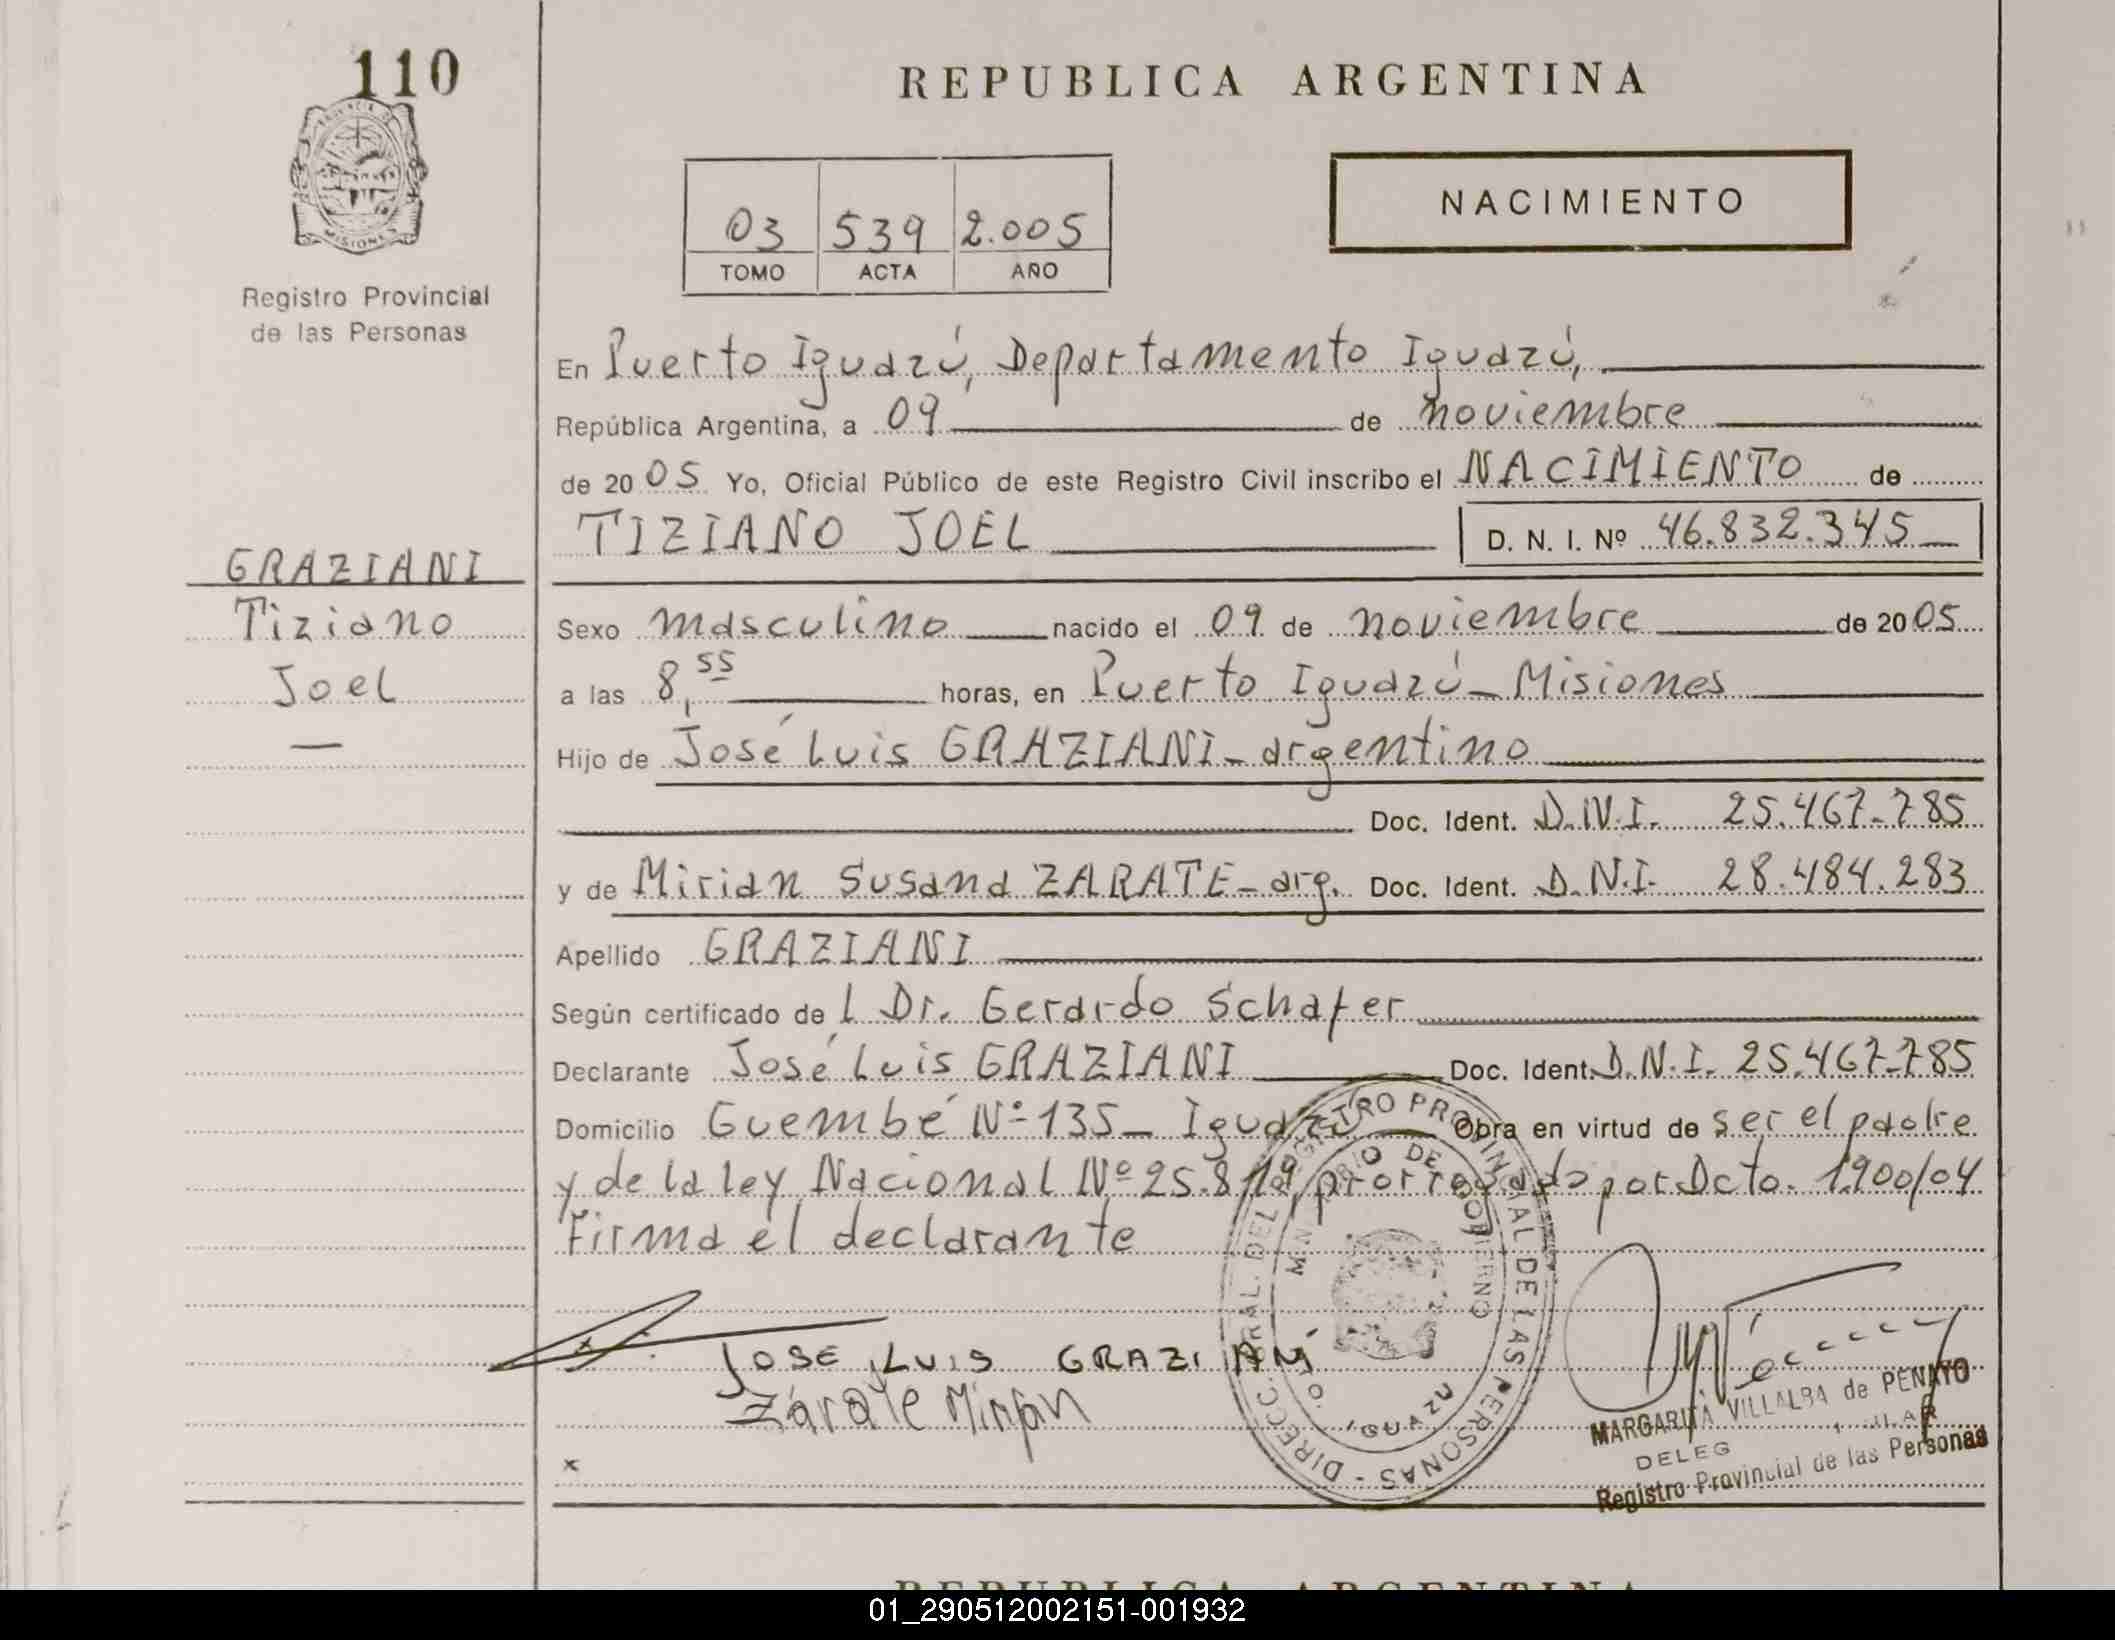 110
REPUBLICA ARGENTINA
PROVINCIA DE MISIONES
NACIMIENTO
03 539 2.005
TOMO ACTA AÑO
Registro Provincial
de las Personas
En Puerto Iguazú, Departamento Iguazú,
República Argentina, a 09 de noviembre
de 2005 Yo, Oficial Público de este Registro Civil inscribo el NACIMIENTO de
TIZIANO JOEL D. N. I. Nº 46.832.345
GRAZIANI
Tiziano
Joel
Sexo masculino nacido el 09 de noviembre de 2005
a las 8,55 horas, en Puerto Iguazú - Misiones
Hijo de José Luis GRAZIANI - argentino
Doc. Ident. D.N.I. 25.467.785
y de Mirian Susana ZARATE - arg. Doc. Ident. D.N.I. 28.484.283
Apellido GRAZIANI
Según certificado del Dr. Gerardo Schafer
Declarante José Luis GRAZIANI Doc. Ident. D.N.I. 25.467.785
Domicilio Guembé Nº 135 - Iguazú Obra en virtud de ser el padre
y de la ley Nacional Nº 25.819 prorrogado por Dcto. 1.900/04
Firma el declarante
JOSE LUIS GRAZIANI
Zárate Mirian
DIRECC. GRAL. DEL REGISTRO PROVINCIAL DE LAS PERSONAS -
MINISTERIO DE GOBIERNO
IGUAZU
MARGARITA VILLALBA de PENAYO
DELEG
Registro Provincial de las Personas
REPUBLICA ARGENTINA
01_290512002151-001932